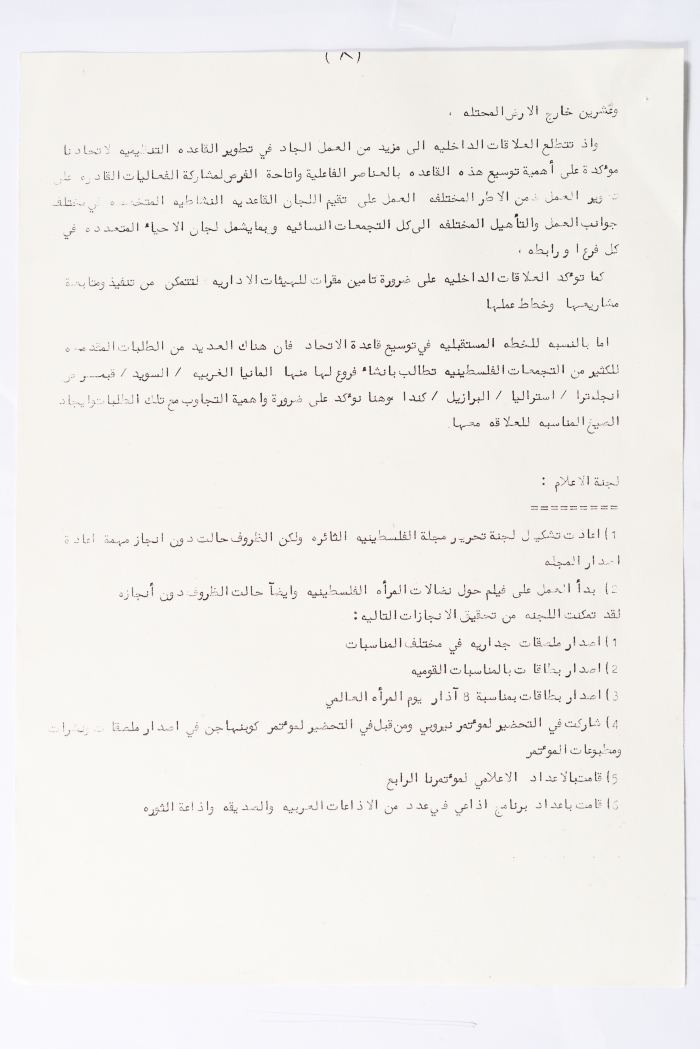 (٨)
وعشرين خارج الارض المحتله .
واذ تتطلع العلاقات الداخليه الى مزيد من العمل الجاد في تطوير القاعده التنظيميه لاتحادنا
مؤكدة على أهمية توسيع هذه القاعده بالعناصر الفاعلية واتاحة الفرص لمشاركة الفعاليات القادره على
تطوير العمل ضمن الاطر المختلفه العمل على تقيم اللجان القاعديه النشاطيه المتخصصه في مختلف
جوانب العمل والتأهيل المختلفه الى كل التجمعات النسائيه وبما يشمل لجان الاحياء المتعدده في
كل فرع او رابطه .
كما تؤكد العلاقات الداخليه على ضرورة تامين مقرات للهيئات الاداريه لتتمكن من تنفيذ ومتابعة
مشاريعها وخطط عملها
اما بالنسبه للخطه المستقبليه في توسيع قاعدة الاتحاد فان هناك العديد من الطلبات المتقدمه
للكثير من التجمعات الفلسطينيه تطالب بانشاء فروع لها منها المانيا الغربيه / السويد / قبرص
انجلترا / استراليا / البرازيل / كندا وهنا نؤكد على ضرورة واهمية التجاوب مع تلك الطلبات وايجاد
الصيغ المناسبه للعلاقه معها.
لجنة الاعلام :
=========
1) اعادت تشكيل لجنة تحرير مجلة الفلسطينيه الثائره ولكن الظروف حالت دون انجاز مهمة اعادة
اصدار المجله
2) بدأ العمل على فيلم حول نضالات المرأه الفلسطينيه وايضآ حالت الظروف دون أنجازه
لقد تمكنت اللجنه من تحقيق الانجازات التاليه :
1) اصدار ملصقات جداريه في مختلف المناسبات
2) اصدار بطاقات بالمناسبات القوميه
3) اصدار بطاقات بمناسبة 8 آذار يوم المرأه العالمي
4) شاركت في التحضير لمؤتمر نيروبي ومن قبل في التحضير لمؤتمر كوبنهاجن في اصدار ملصقات ونشرات
ومطبوعات المؤتمر
5) قامت بالاعداد الاعلامي لمؤتمرنا الرابع
6) قامت باعداد برنامج اذاعي في عدد من الاذاعات العربيه والصديقه واذاعة الثوره